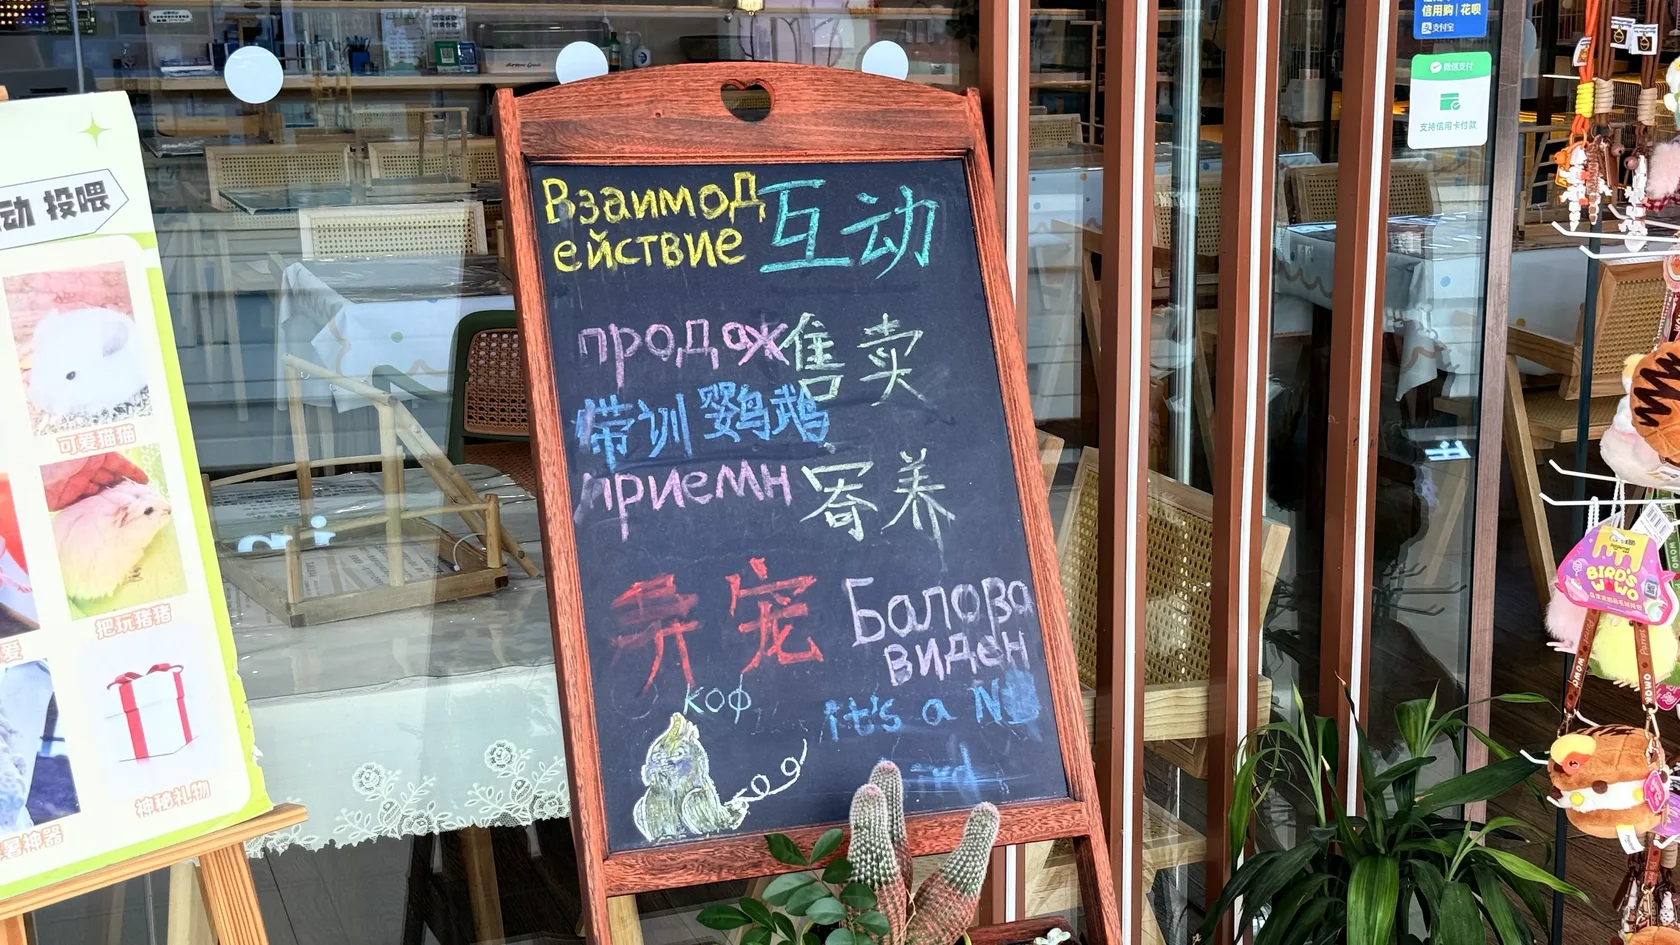 动 投喂
可爱猫猫
把玩猪猪
爱
神秘礼物
暑神器
Взаимод 互动
ействие
продаж 售卖
带训 鹦鹉
приемн 寄养
弄宠 Балова
виден
коф
it's a
信用购 | 花呗
支付宝
微信支付
支持信用卡付款
BIRD'S
WOWO